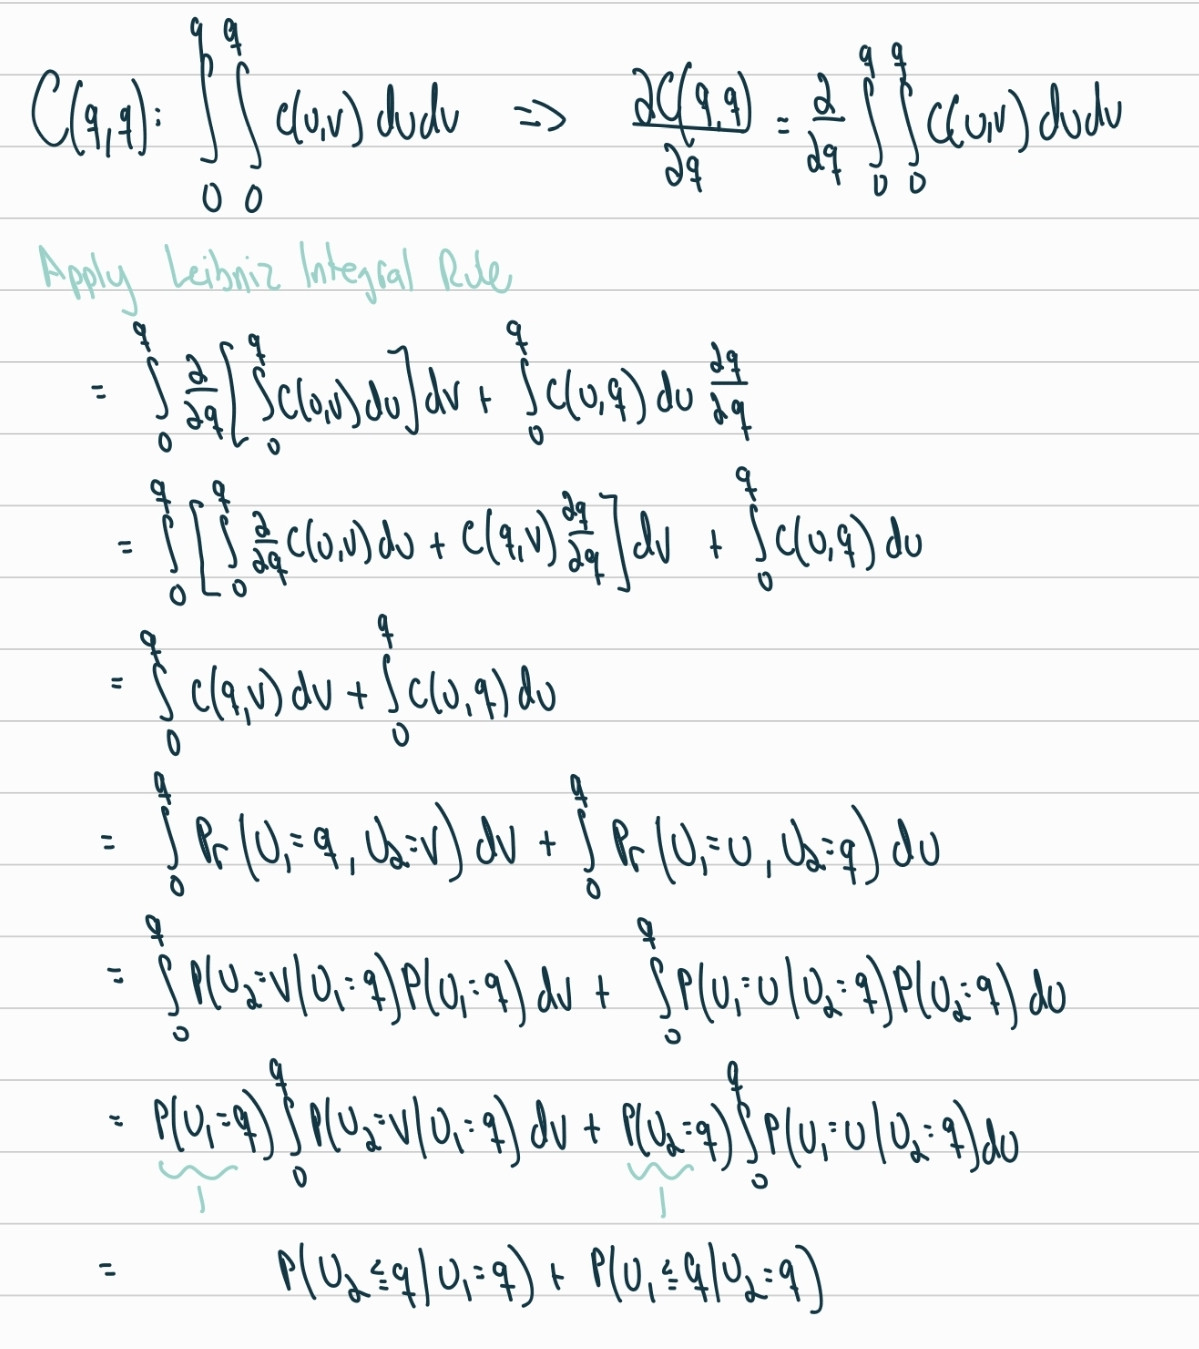 C(q,q): ∫₀^q ∫₀^q c(u,v) dudv ⇒ ∂C(q,q)/∂q = ∂/∂q ∫₀^q ∫₀^q c(u,v) dudv
Apply Leibniz Integral Rule
= ∫₀^q ∂/∂q [∫₀^q c(u,v) du] dv + ∫₀^q c(u,q) du ∂q/∂q
= ∫₀^q [∫₀^q ∂/∂q c(u,v) du + c(q,v) ∂q/∂q] dv + ∫₀^q c(u,q) du
= ∫₀^q c(q,v) dv + ∫₀^q c(u,q) du
= ∫₀^q Pr(U₁=q, U₂=v) dv + ∫₀^q Pr(U₁=u, U₂=q) du
= ∫₀^q P(U₂=v|U₁=q)P(U₁=q) dv + ∫₀^q P(U₁=u|U₂=q)P(U₂=q) du
= P(U₁=q) ∫₀^q P(U₂=v|U₁=q) dv + P(U₂=q) ∫₀^q P(U₁=u|U₂=q) du
1 1
= P(U₂≤q|U₁=q) + P(U₁≤q|U₂=q)